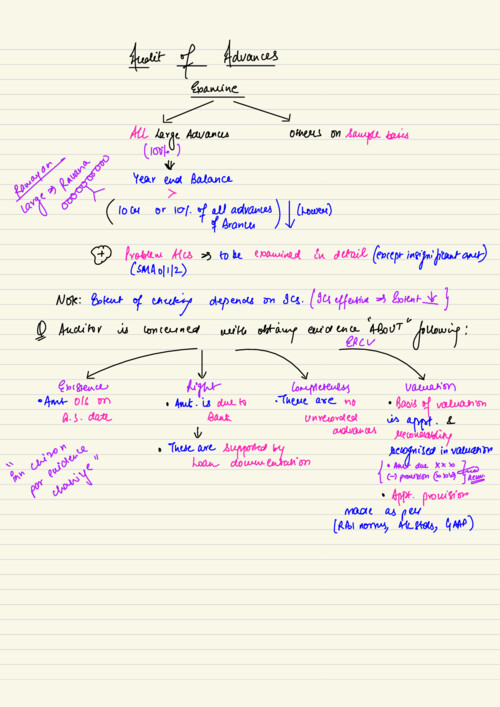 Audit of Advances
Examine
All Large Advances
(100%)
Others on sample basis
Year end Balance
>
(10 Cr or 10% of all advances of Branch) ↓ (Lower)
Ramayan
Large ⇒ Ravana
(+) Problem A/Cs ⇒ to be examined in detail (except insignificant amt)
(SMA 0/1/2)
Note: Extent of checking depends on ICs. {ICs effective ⇒ Extent ↓}
Q Auditor is concerned with obtaining evidence "ABOUT" following:
ERCV
Existence
• Amt O/S on
B.S. date
Right
• Amt. is due to
Bank
• These are supported by
Loan documentation
Completeness
• There are no
unrecorded
advances
Valuation
• Basis of valuation
is appt. &
recoverability
recognised in valuation
• Amt due xxx
(-) provision (xxx)
• Appt. provision
made as per
(RBI norms, AS, GAAP)
"In chizon
par evidence
chahiye"